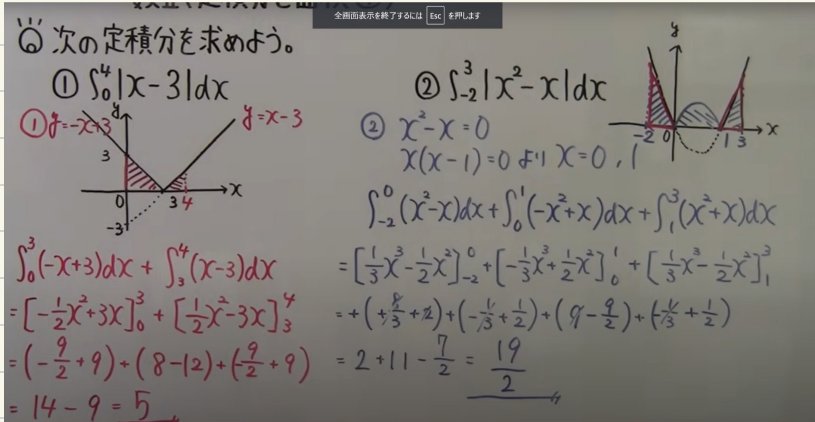 全画面表示を終了するには Esc を押します
Q 次の定積分を求めよう。
① ∫₀⁴|x-3|dx
① y=-x+3
y
y=x-3
3
0 3 4 x
-3
∫₀³(-x+3)dx + ∫₃⁴(x-3)dx
=[-1/2x²+3x]₀³ + [1/2x²-3x]₃⁴
=(-9/2+9)+(8-12)+(-9/2+9)
= 14-9 = 5
② ∫₋₂³|x²-x|dx
y
-2 0 1 3 x
② x²-x=0
x(x-1)=0より x=0, 1
∫₋₂⁰(x²-x)dx+∫₀¹(-x²+x)dx+∫₁³(x²+x)dx
=[1/3x³-1/2x²]₋₂⁰+[-1/3x³+1/2x²]₀¹+[1/3x³-1/2x²]₁³
=+(+8/3+2)+(-1/3+1/2)+(9-9/2)+(-1/3+1/2)
= 2+11-7/2 = 19/2